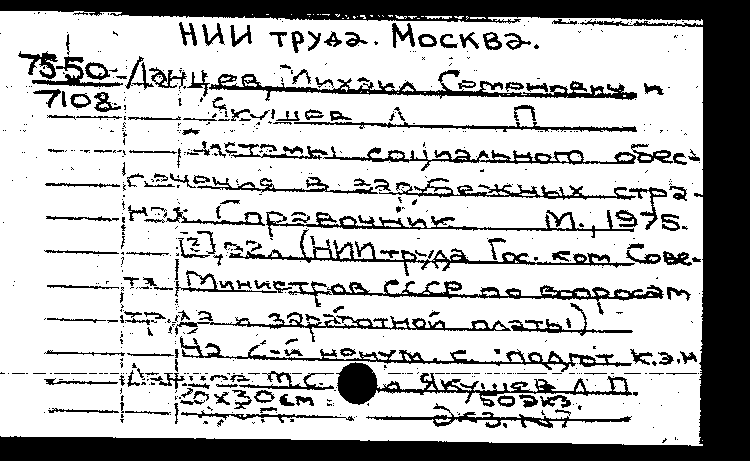 НИИ труда. Москва.
75-50 Ланцев, Михаил Семенович и
7108
Якушев Л П
Системы социального обес-
печения в зарубежных стра-
нах Справочник М., 1975.
[3], 92л (НИИ труда Гос. ком Сове-
та Министров СССР по вопросам
труда и заработной платы)
На 2-й ненум. с. подгот. к.э.н
Ланцев М.С. Якушев Л П.
20х30 см 50 экз.
Экз. №7